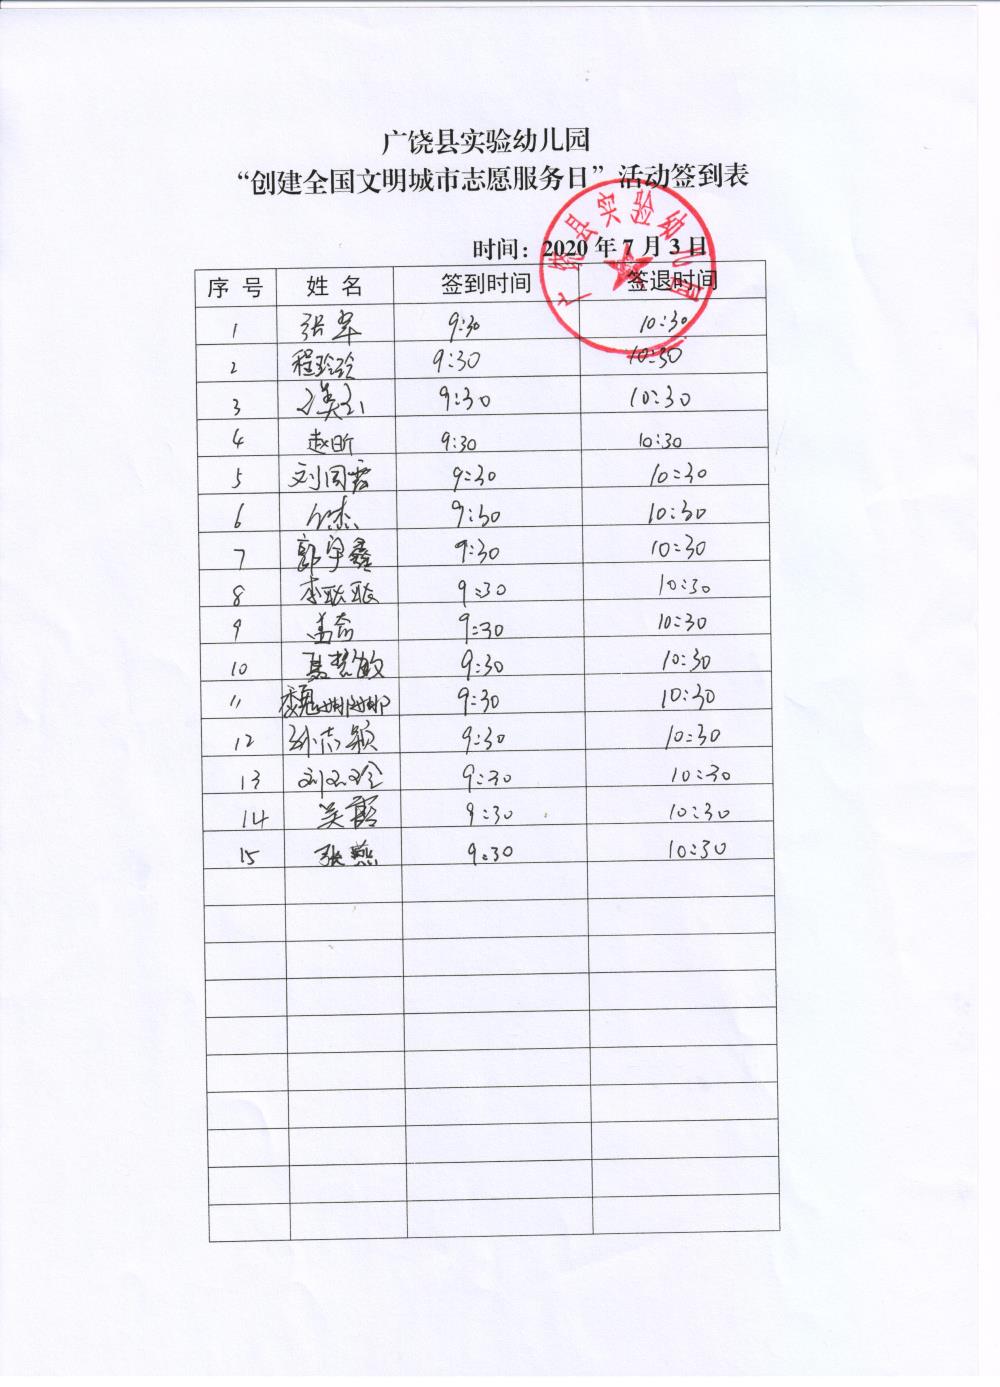 广饶县实验幼儿园
“创建全国文明城市志愿服务日”活动签到表
时间：2020年7月3日
广饶县实验幼儿园
序号 姓名 签到时间 签退时间
1 张军 9:30 10:30
2 程玲玲 9:30 10:30
3 9:30 10:30
4 赵昕 9:30 10:30
5 刘国霞 9:30 10:30
6 9:30 10:30
7 郭宇鑫 9:30 10:30
8 李聪聪 9:30 10:30
9 9:30 10:30
10 9:30 10:30
11 魏娜娜 9:30 10:30
12 孙志颖 9:30 10:30
13 刘玉珍 9:30 10:30
14 吴霞 9:30 10:30
15 张燕 9:30 10:30